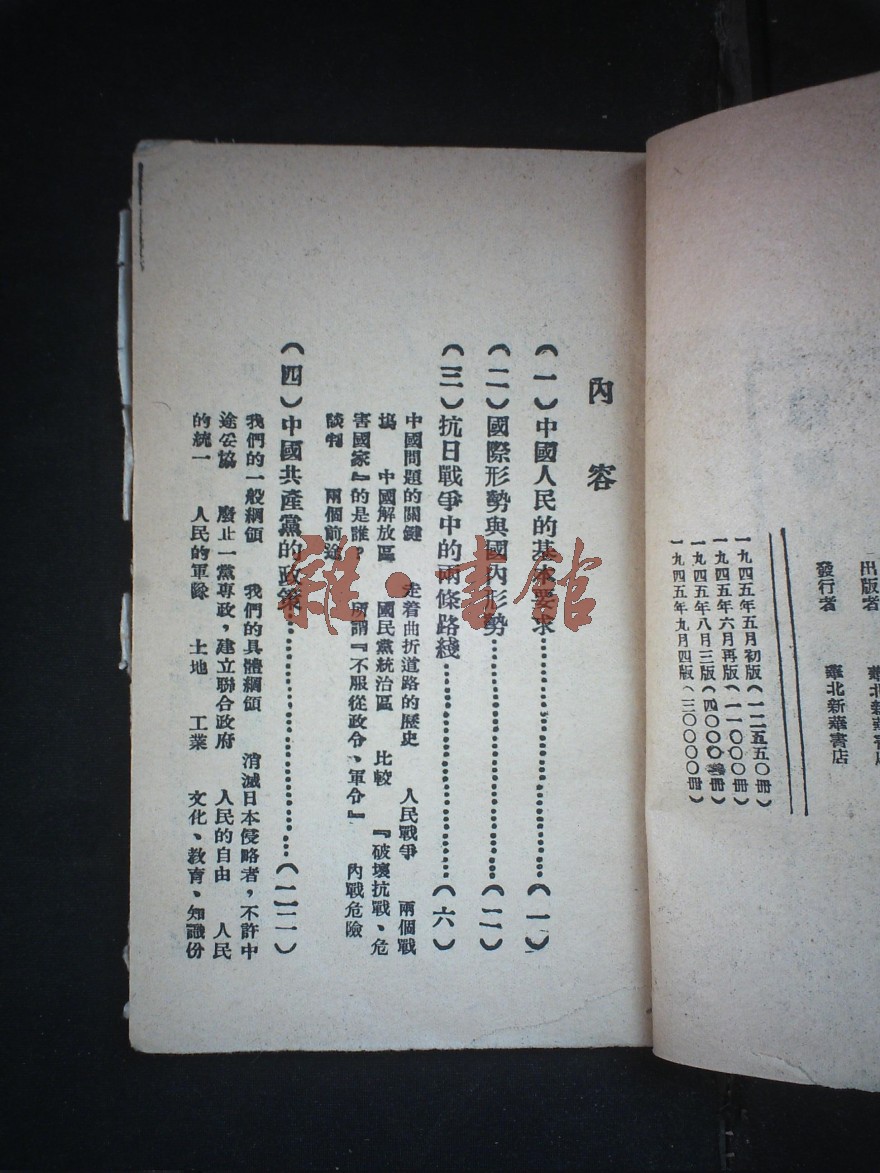 出版者　華北新華書店
發行者　華北新華書店
一九四五年五月初版（一二五五〇冊）
一九四五年六月再版（一一〇〇〇冊）
一九四五年八月三版（四〇〇〇冊）
一九四五年九月四版（三〇〇〇〇冊）
內容
（一）中國人民的基本要求……（一）
（二）國際形勢與國內形勢……（二）
（三）抗日戰爭中的兩條路綫……（六）
中國問題的關鍵　走着曲折道路的歷史　人民戰爭　兩個戰
場　中國解放區　國民黨統治區　比較　『破壞抗戰、危
害國家』的是誰？　所謂『不服從政令、軍令』　內戰危險
談判　兩個前途
（四）中國共產黨的政策……
我們的一般綱領　我們的具體綱領　消滅日本侵略者，不許中
途妥協　廢止一黨專政，建立聯合政府　人民的自由　人民
的統一　人民的軍隊　土地　工業　文化、教育、知識份
雜·書館